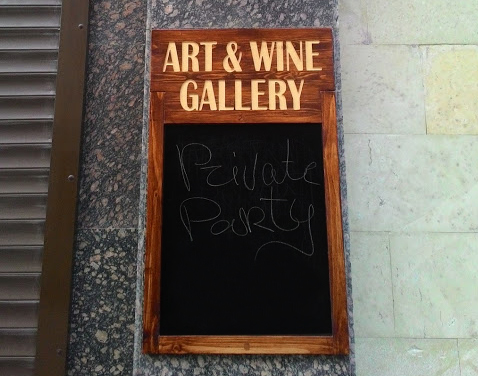 ART & WINE
GALLERY
Private
Party